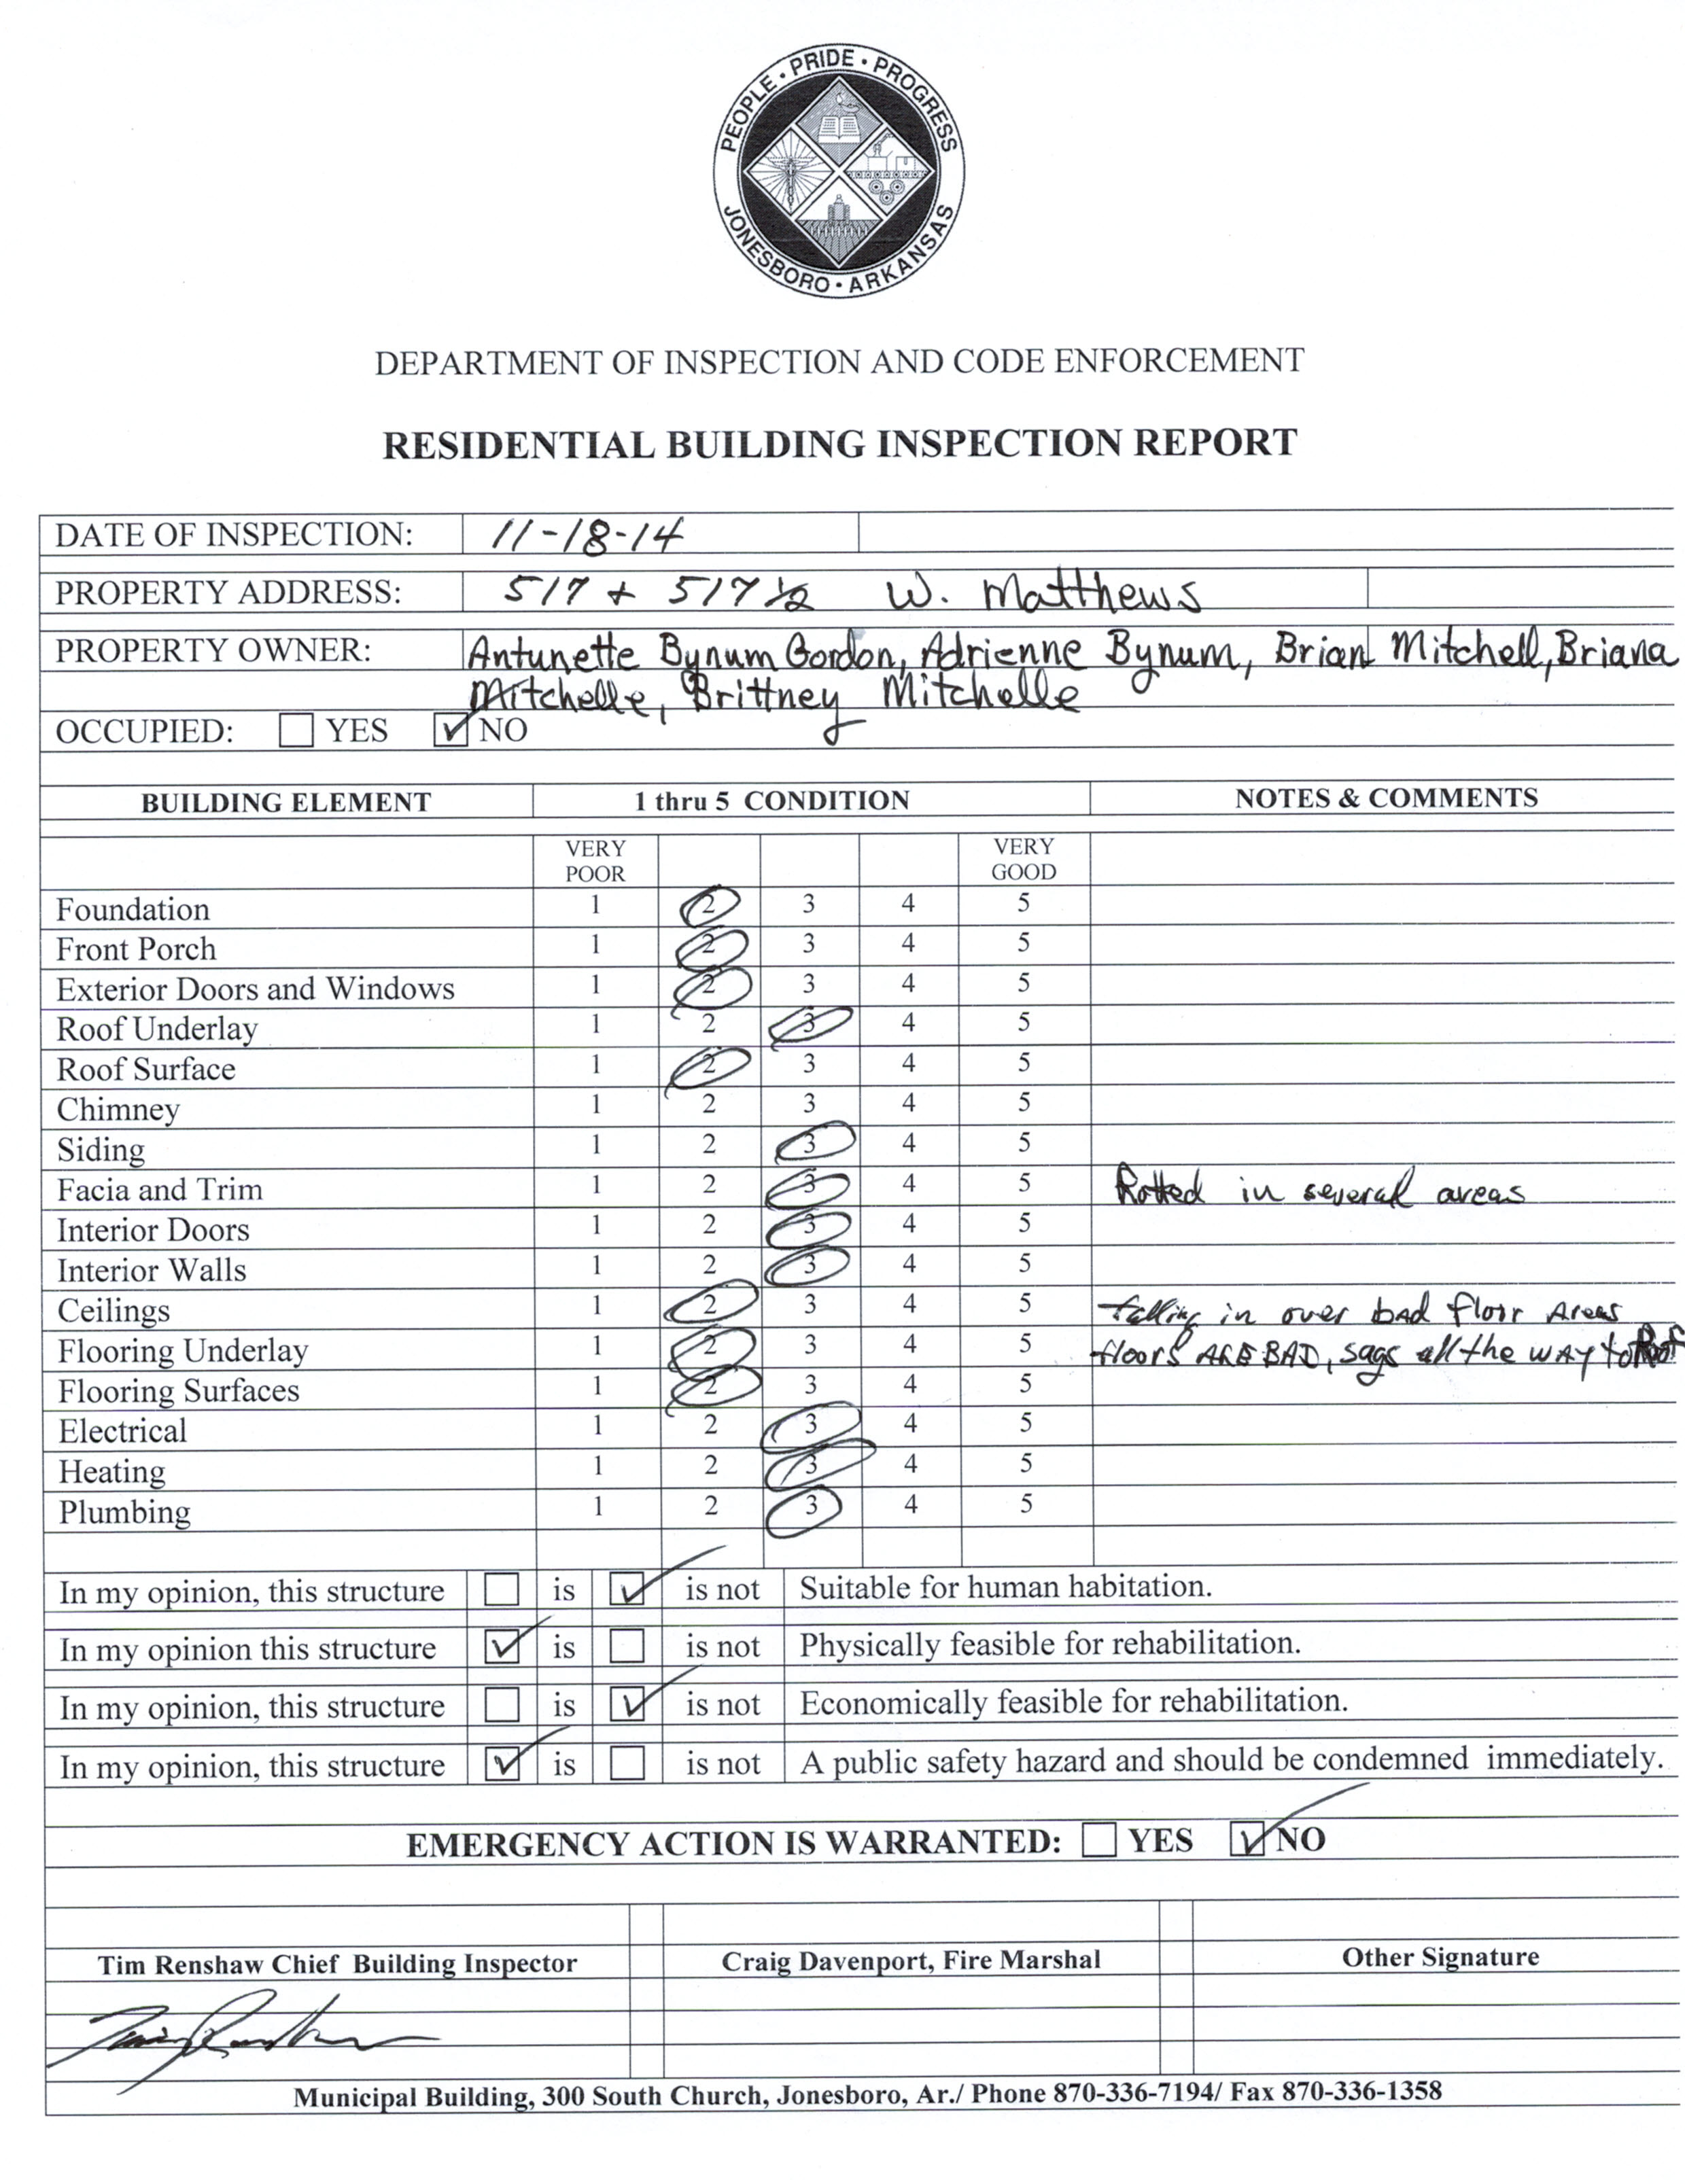 PEOPLE • PRIDE • PROGRESS
JONESBORO • ARKANSAS
DEPARTMENT OF INSPECTION AND CODE ENFORCEMENT
RESIDENTIAL BUILDING INSPECTION REPORT
DATE OF INSPECTION: 11-18-14
PROPERTY ADDRESS: 517 + 517 1/2 W. Matthews
PROPERTY OWNER: Antunette Bynum Gordon, Adrienne Bynum, Brian Mitchell, Briana
Mitchelle, Brittney Mitchelle
OCCUPIED: YES NO
BUILDING ELEMENT 1 thru 5 CONDITION NOTES & COMMENTS
VERY POOR VERY GOOD
Foundation 1 2 3 4 5
Front Porch 1 2 3 4 5
Exterior Doors and Windows 1 2 3 4 5
Roof Underlay 1 2 3 4 5
Roof Surface 1 2 3 4 5
Chimney 1 2 3 4 5
Siding 1 2 3 4 5
Facia and Trim 1 2 3 4 5 Rotted in several areas
Interior Doors 1 2 3 4 5
Interior Walls 1 2 3 4 5
Ceilings 1 2 3 4 5 falling in over bad floor Areas
Flooring Underlay 1 2 3 4 5 floors ARE BAD, sags all the way to
Flooring Surfaces 1 2 3 4 5
Electrical 1 2 3 4 5
Heating 1 2 3 4 5
Plumbing 1 2 3 4 5
In my opinion, this structure is is not Suitable for human habitation.
In my opinion this structure is is not Physically feasible for rehabilitation.
In my opinion, this structure is is not Economically feasible for rehabilitation.
In my opinion, this structure is is not A public safety hazard and should be condemned immediately.
EMERGENCY ACTION IS WARRANTED: YES NO
Tim Renshaw Chief Building Inspector Craig Davenport, Fire Marshal Other Signature
Municipal Building, 300 South Church, Jonesboro, Ar./ Phone 870-336-7194/ Fax 870-336-1358